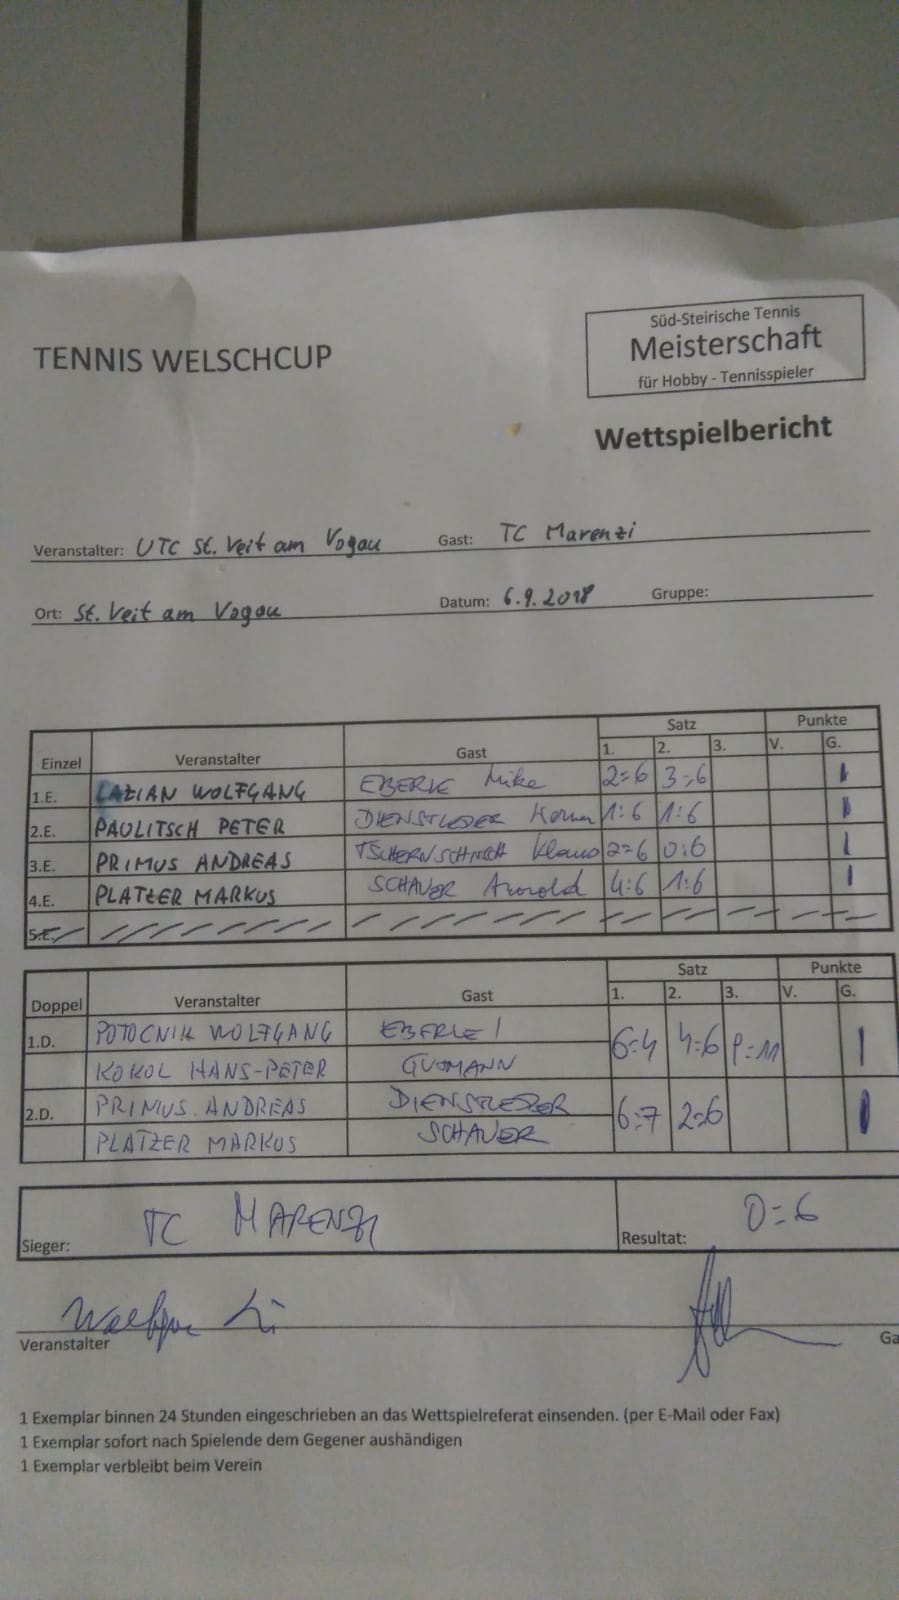 Süd-Steirische Tennis
TENNIS WELSCHCUP Meisterschaft
für Hobby - Tennisspieler
Wettspielbericht
Veranstalter: UTC St. Veit am Vogau Gast: TC Marenzi
Ort: St. Veit am Vogau Datum: 6.9.2018 Gruppe:
Satz Punkte
Einzel Veranstalter Gast 1. 2. 3. V. G.
1.E. LAZIAN WOLFGANG EBERLE Mike 2:6 3:6 1
2.E. PAULITSCH PETER DIENSTLEDER 1:6 1:6 1
3.E. PRIMUS ANDREAS Klaus 2:6 0:6 1
4.E. PLATZER MARKUS SCHAUER Arnold 4:6 1:6 1
5.E.
Satz Punkte
Doppel Veranstalter Gast 1. 2. 3. V. G.
1.D. POTOCNIK WOLFGANG EBERLE / 6:4 4:6 9:11 1
KOKOL HANS-PETER GUTMANN
2.D. PRIMUS ANDREAS DIENSTLEDER 6:7 2:6 1
PLATZER MARKUS SCHAUER
Sieger: TC MARENZI Resultat: 0:6
Veranstalter Ga
1 Exemplar binnen 24 Stunden eingeschrieben an das Wettspielreferat einsenden. (per E-Mail oder Fax)
1 Exemplar sofort nach Spielende dem Gegener aushändigen
1 Exemplar verbleibt beim Verein